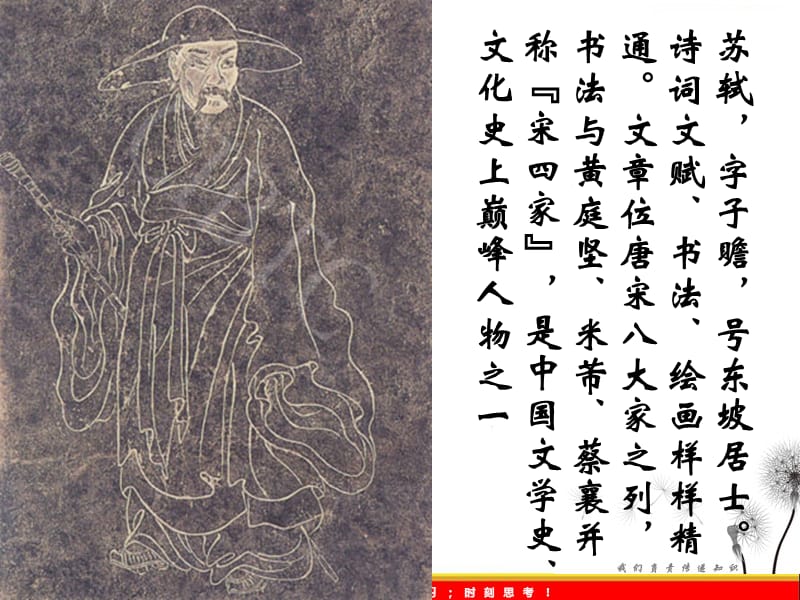 苏轼，字子瞻，号东坡居士。
诗词文赋、书法、绘画样样精
通。文章位唐宋八大家之列，
书法与黄庭坚、米芾、蔡襄并
称『宋四家』，是中国文学史、
文化史上巅峰人物之一
我们肩负传递知识
；时刻思考！